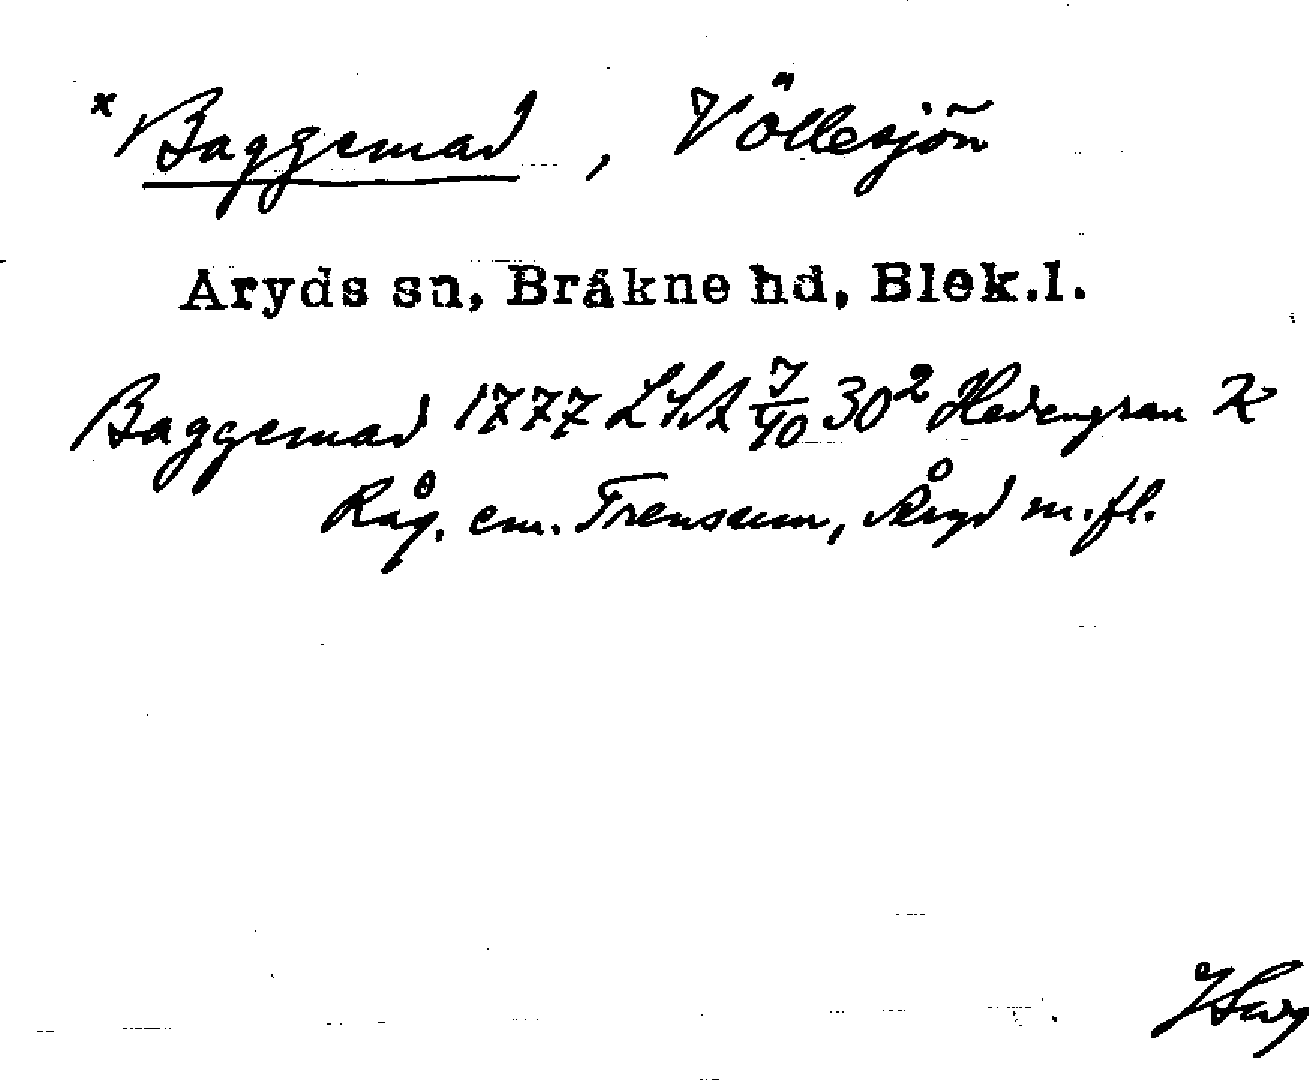 * Baggemad, Völlesjön
Åryds sn, Bräkne hd, Blek.l.
Baggemad 1777 LSA 7/10 30² Hedengran K
Råg. em. Trensum, Åryd m.fl.